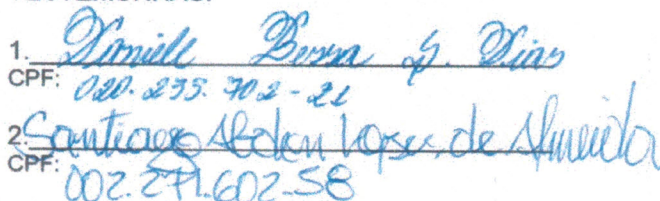 1. Daniele Bessa S. Dias
CPF: 020.235.702-21
2. Santiago Abdon Lopes de Almeida
CPF: 002.271.602-58